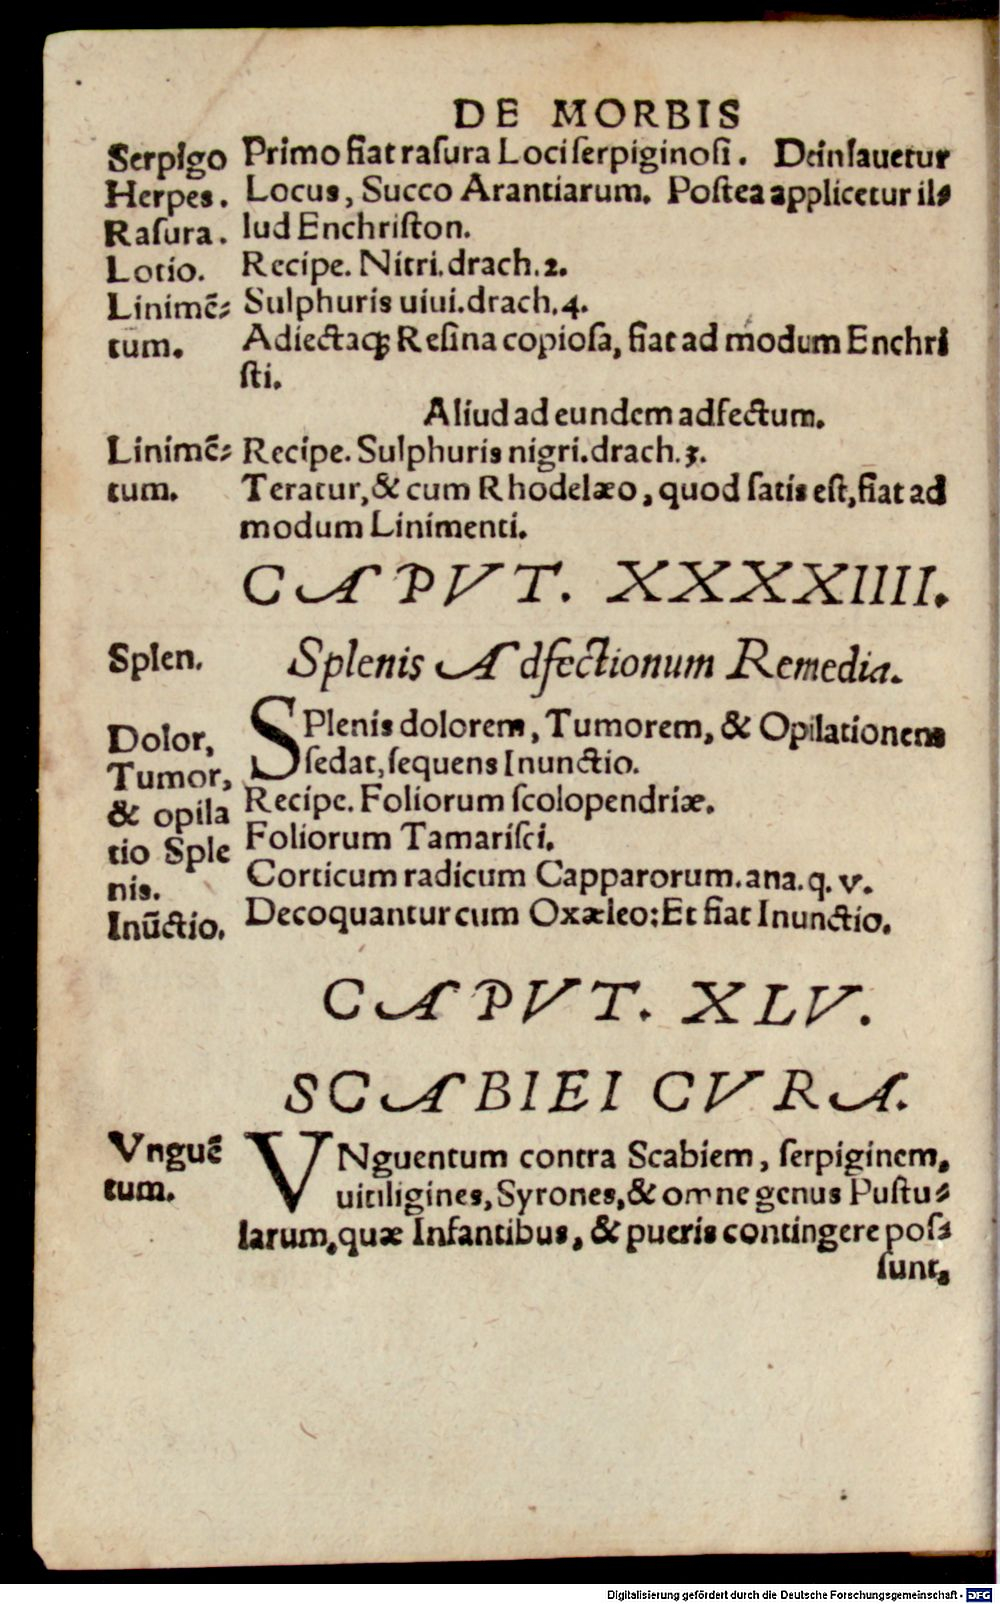 DE MORBIS
Serpigo
Herpes.
Raſura.
Lotio.
Linimē⸗
tum.
Primo fiat raſura Loci ſerpiginoſi. Dein lauetur
Locus, Succo Arantiarum. Poſtea applicetur il⸗
lud Enchriſton.
Recipe. Nitri. drach. 2.
Sulphuris uiui. drach. 4.
Adiectaq; Reſina copioſa, fiat ad modum Enchri
ſti.
Aliud ad eundem adfectum.
Linimē⸗
tum.
Recipe. Sulphuris nigri. drach. 3.
Teratur, & cum Rhodelæo, quod ſatis eſt, fiat ad
modum Linimenti.
CAPVT. XXXXIIII.
Splen.
Splenis Adfectionum Remedia.
Dolor,
Tumor,
& opila
tio Sple
nis.
Inūctio.
SPlenis dolorem, Tumorem, & Opilationem
ſedat, ſequens Inunctio.
Recipe. Foliorum ſcolopendriæ.
Foliorum Tamariſci.
Corticum radicum Capparorum. ana. q. v.
Decoquantur cum Oxæleo: Et fiat Inunctio.
CAPVT. XLV.
SCABIEI CVRA.
Vnguē
tum.
VNguentum contra Scabiem, ſerpiginem,
uitiligines, Syrones, & omne genus Puſtu⸗
larum, quæ Infantibus, & pueris contingere poſ⸗
ſunt,
Digitalisierung gefördert durch die Deutsche Forschungsgemeinschaft - DFG